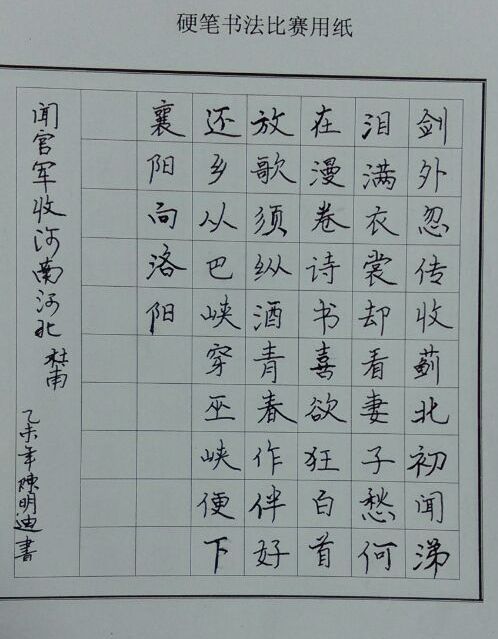 硬笔书法比赛用纸
剑外忽传收蓟北初闻涕
泪满衣裳却看妻子愁何
在漫卷诗书喜欲狂白首
放歌须纵酒青春作伴好
还乡从巴峡穿巫峡便下
襄阳向洛阳
闻官军收河南河北 杜甫
乙未年陳明迪書